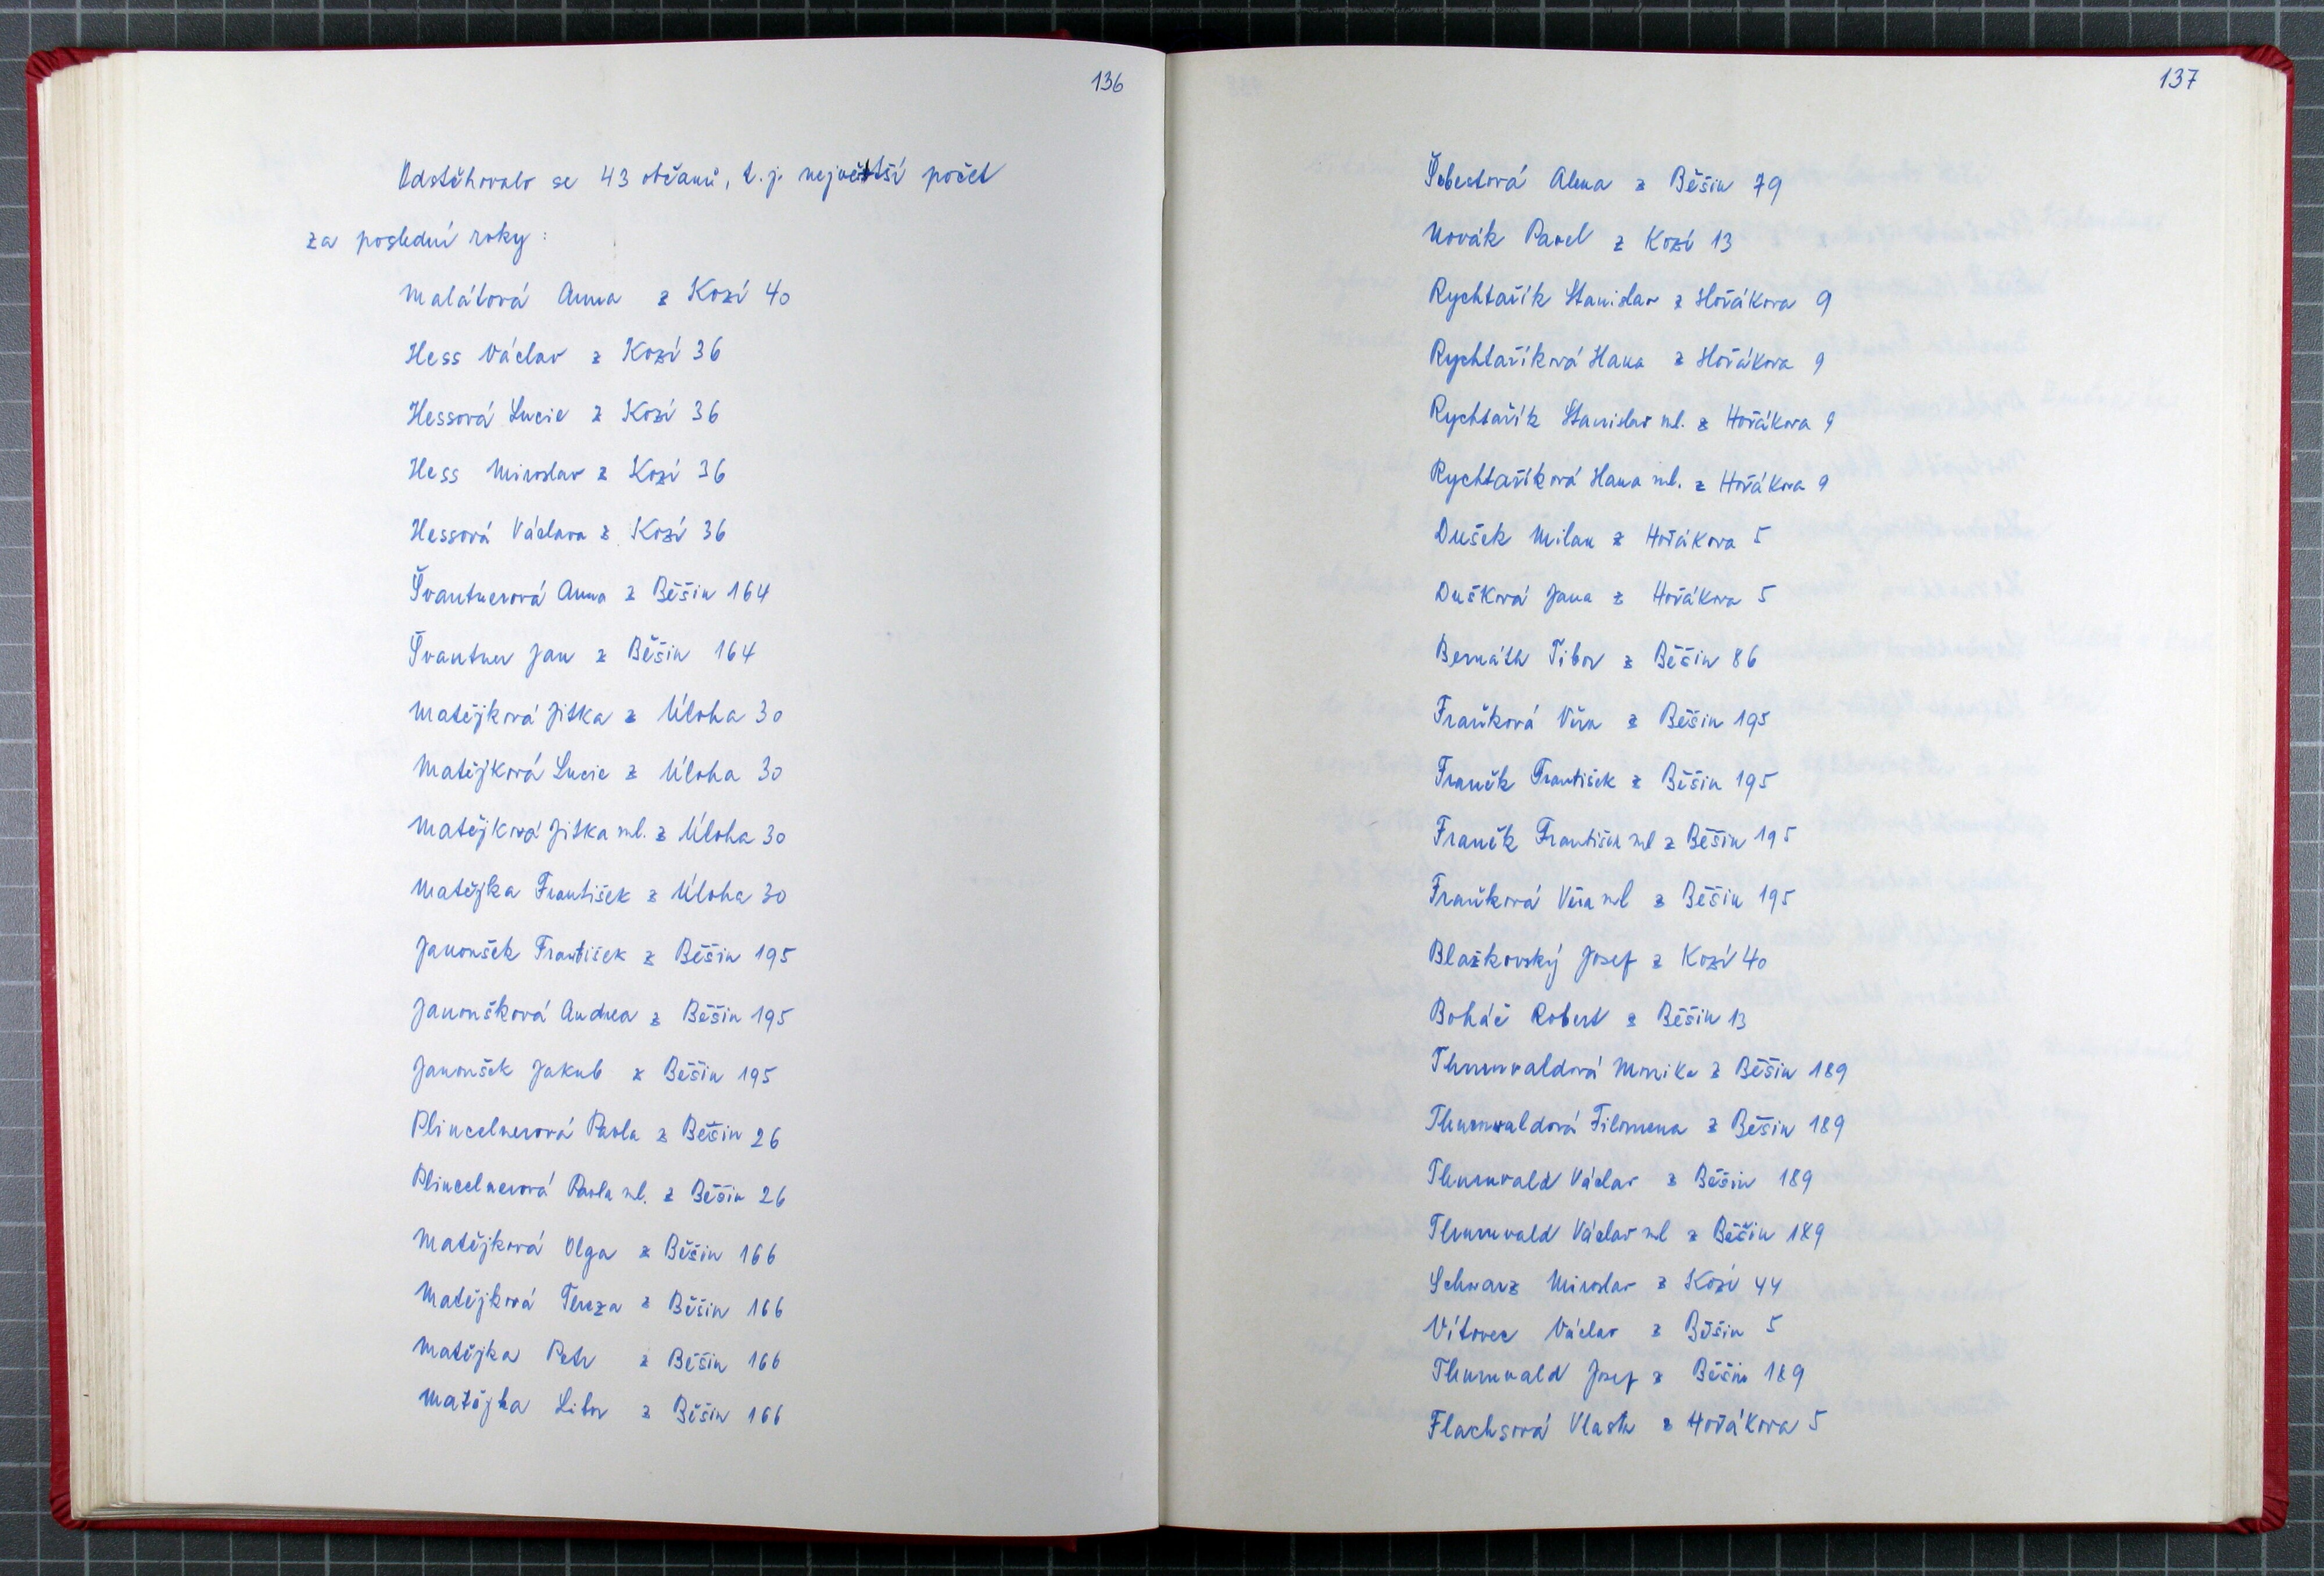 136
Odstěhovalo se 43 občanů, t.j. největší počet
za poslední roky:
Malátová Anna z Kozí 40
Hess Václav z Kozí 36
Hessová Lucie z Kozí 36
Hess Miroslav z Kozí 36
Hessová Václava z Kozí 36
Švantnerová Anna z Běšin 164
Švantner Jan z Běšin 164
Matějková Jitka z Úloha 30
Matějková Lucie z Úloha 30
Matějková Jitka ml. z Úloha 30
Matějka František z Úloha 30
Janoušek František z Běšin 195
Janoušková Andrea z Běšin 195
Janoušek Jakub z Běšin 195
Plincelnerová Pavla z Běšin 26
Plincelnerová Pavla ml. z Běšin 26
Matějková Olga z Běšin 166
Matějková Tereza z Běšin 166
Matějka Petr z Běšin 166
Matějka Libor z Běšin 166
137
Šebestová Alena z Běšin 79
Novák Pavel z Kozí 13
Rychtařík Stanislav z Hořákova 9
Rychtaříková Hana z Hořákova 9
Rychtařík Stanislav ml. z Hořákova 9
Rychtaříková Hana ml. z Hořákova 9
Dušek Milan z Hořákova 5
Dušková Jana z Hořákova 5
Bernáth Tibor z Běšin 86
Fraňková Věra z Běšin 195
Franěk František z Běšin 195
Franěk František ml z Běšin 195
Fraňková Věra ml z Běšin 195
Blažkovský Josef z Kozí 40
Boháč Robert z Běšin 13
Thurnvaldová Monika z Běšin 189
Thurnvaldová Filomena z Běšin 189
Thurnvald Václav z Běšin 189
Thurnvald Václav ml z Běšin 189
Schwarz Miroslav z Kozí 44
Vítovec Václav z Běšin 5
Thurnvald Josef z Běšin 189
Flachsová Vlasta z Hořákova 5